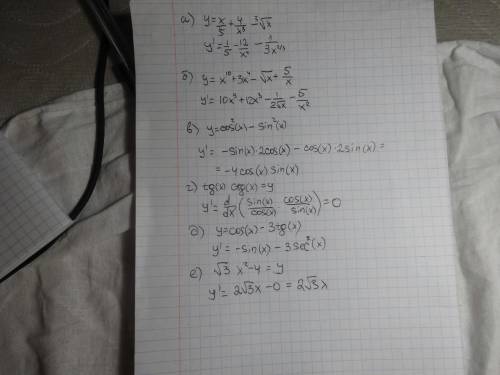 а) y = x/5 + 4/x³ - ³√x
y' = 1/5 - 12/x⁴ - 1/(3x^(2/3))
б) y = x¹⁰ + 3x⁴ - √x + 5/x
y' = 10x⁹ + 12x³ - 1/(2√x) - 5/x²
в) y = cos²(x) - sin²(x)
y' = -sin(x)·2cos(x) - cos(x)·2sin(x) =
= -4cos(x)sin(x)
г) tg(x) ctg(x) = y
y' = d/dx (sin(x)/cos(x) · cos(x)/sin(x)) = 0
д) y = cos(x) - 3tg(x)
y' = -sin(x) - 3sec²(x)
е) √3 x² - 4 = y
y' = 2√3x - 0 = 2√3x